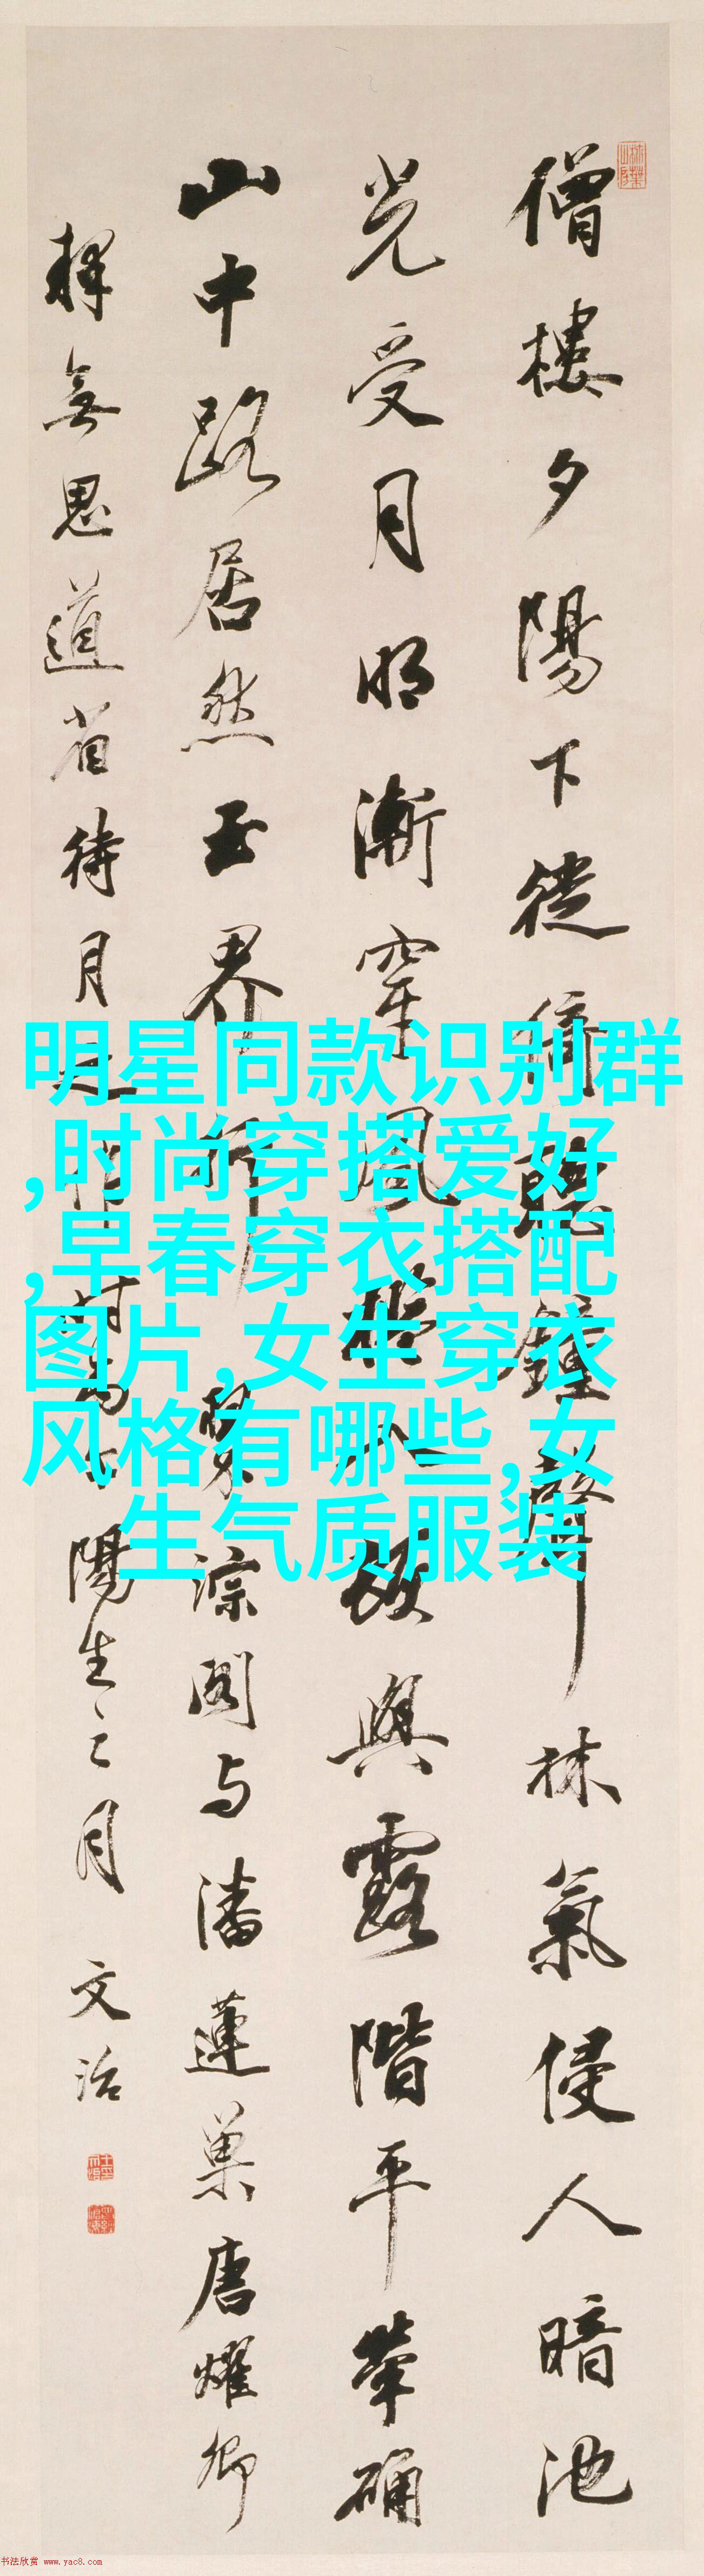 僧樓夕陽下徙倚聽鐘聲林氣侵人暗池
光受月明漸穿風
與露階平葦碉
山中路居然玉界行
淙閣与潘蓮巢唐耀卿
禅無思道省待月之
陽生之月 文治
明星同款识别群
,时尚穿搭爱好
,早春穿衣搭配
图片,女生穿衣
风格有哪些,女
生气质服装
书法欣赏 www.yac8.com